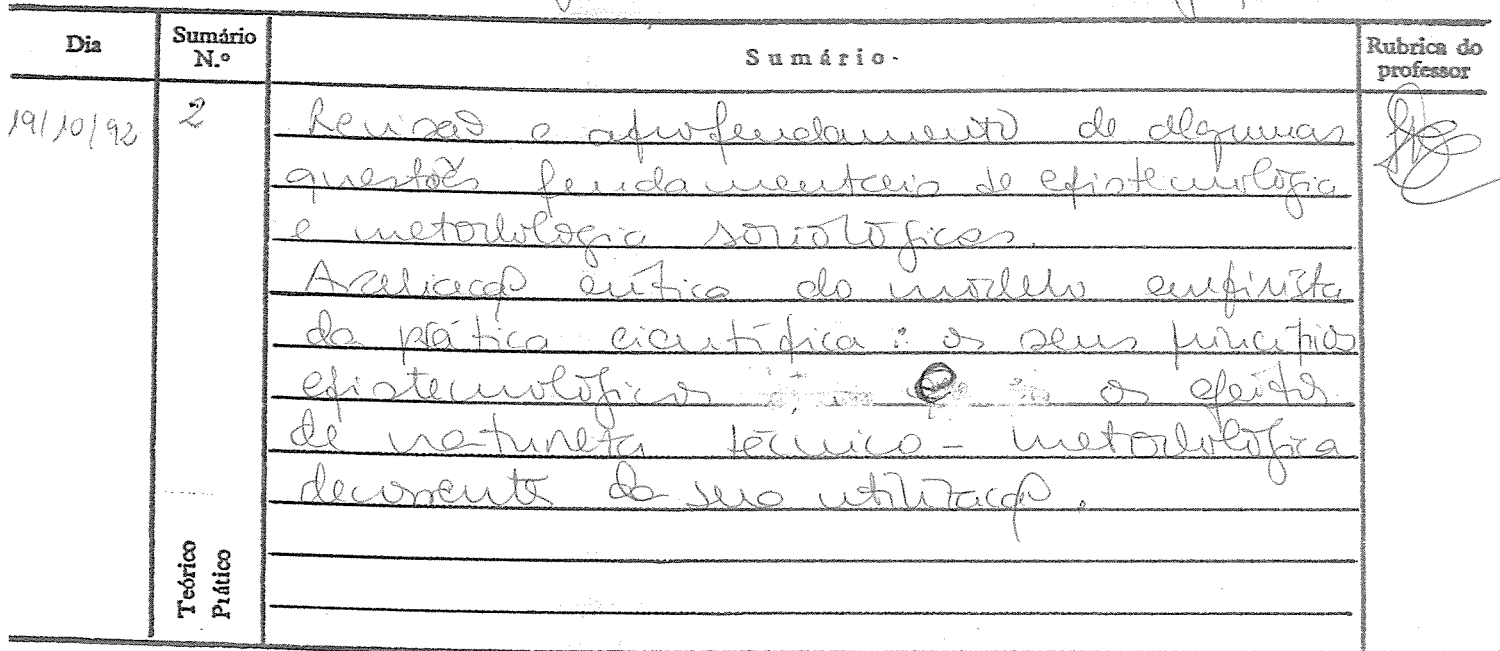 Dia
Sumário N.º
Sumário.
Rubrica do professor
19/10/92
2
Revisão e aprofundamento de algumas
questões fundamentais de epistemologia
e metodologia sociológicas.
Avaliação crítica do modelo empirista
da prática científica: os seus princípios
epistemológicos e os efeitos
de natureza técnico-metodológica
decorrentes da sua utilização.
Teórico
Prático